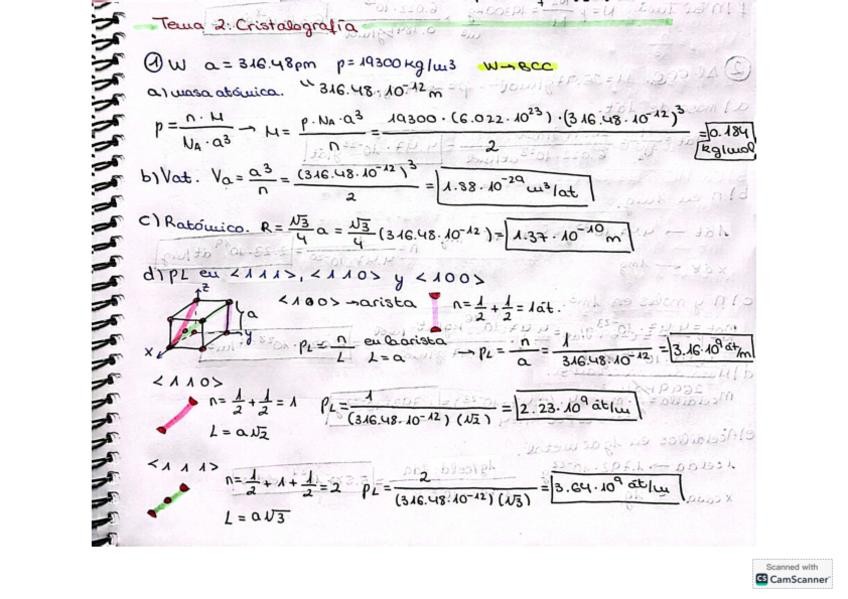 Tema 2: Cristalografía
① W a = 316.48pm ρ = 19300 kg/m3 W → BCC
a) masa atómica. " 316.48·10⁻¹² m
ρ = n·M / N_A·a³ → M = ρ·N_A·a³ / n = 19300·(6.022·10²³)·(316.48·10⁻¹²)³ / 2 = 0.184 kg/mol
b) Vat. Va = a³ / n = (316.48·10⁻¹²)³ / 2 = 1.38·10⁻²⁹ m³/át
c) Ratómico. R = √3/4 a = √3/4 (316.48·10⁻¹²) = 1.37·10⁻¹⁰ m
d) ρL en <111>, <110> y <100>
z
a
y
x
<100> → arista n = 1/2 + 1/2 = 1 át.
ρL = n/L en la arista L = a → ρL = n/a = 1 / 316.48·10⁻¹² = 3.16·10⁹ át/m
<110>
n = 1/2 + 1/2 = 1 ρL = 1 / (316.48·10⁻¹²)(√2) = 2.23·10⁹ át/m
L = a√2
<111>
n = 1/2 + 1 + 1/2 = 2 ρL = 2 / (316.48·10⁻¹²)(√3) = 3.64·10⁹ át/m
L = a√3
Scanned with
CS CamScanner